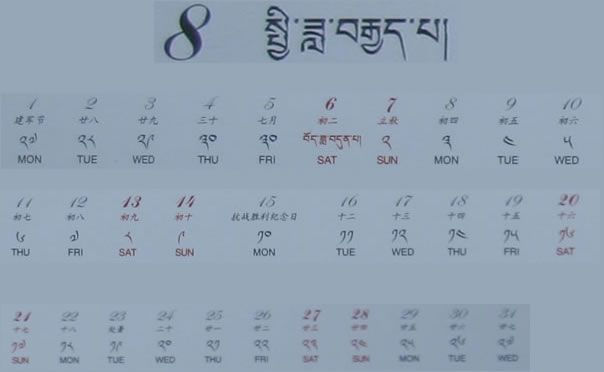 8 སྤྱི་ཟླ་བརྒྱད་པ།
1 2 3 4 5 6 7 8 9 10
建军节 廿八 廿九 三十 七月 初二 立秋 初四 初五 初六
༢༧ ༢༨ ༢༩ ༣༠ ༣༠ བོད་ཟླ་བདུན་པ། ༢ ༣ ༤ ༥
MON TUE WED THU FRI SAT SUN MON TUE WED
11 12 13 14 15 16 17 18 19 20
初七 初八 初九 初十 抗战胜利纪念日 十二 十三 十四 十五 十六
༦ ༧ ༨ ༩ ༡༠ ༡༡ ༡༢ ༡༤ ༡༥ ༡༦
THU FRI SAT SUN MON TUE WED THU FRI SAT
21 22 23 24 25 26 27 28 29 30 31
十七 十八 处暑 二十 廿一 廿二 廿三 廿四 廿五 廿六 廿七
༡༧ ༡༨ ༡༩ ༢༠ ༢༡ ༢༢ ༢༣ ༢༤ ༢༥ ༢༦ ༢༧
SUN MON TUE WED THU FRI SAT SUN MON TUE WED